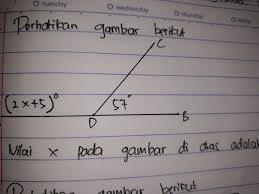 tuesday wednesday thursday
Perhatikan gambar berikut
C
(2x+5)° 57°
D B
Nilai x pada gambar di atas adalah
gambar berikut